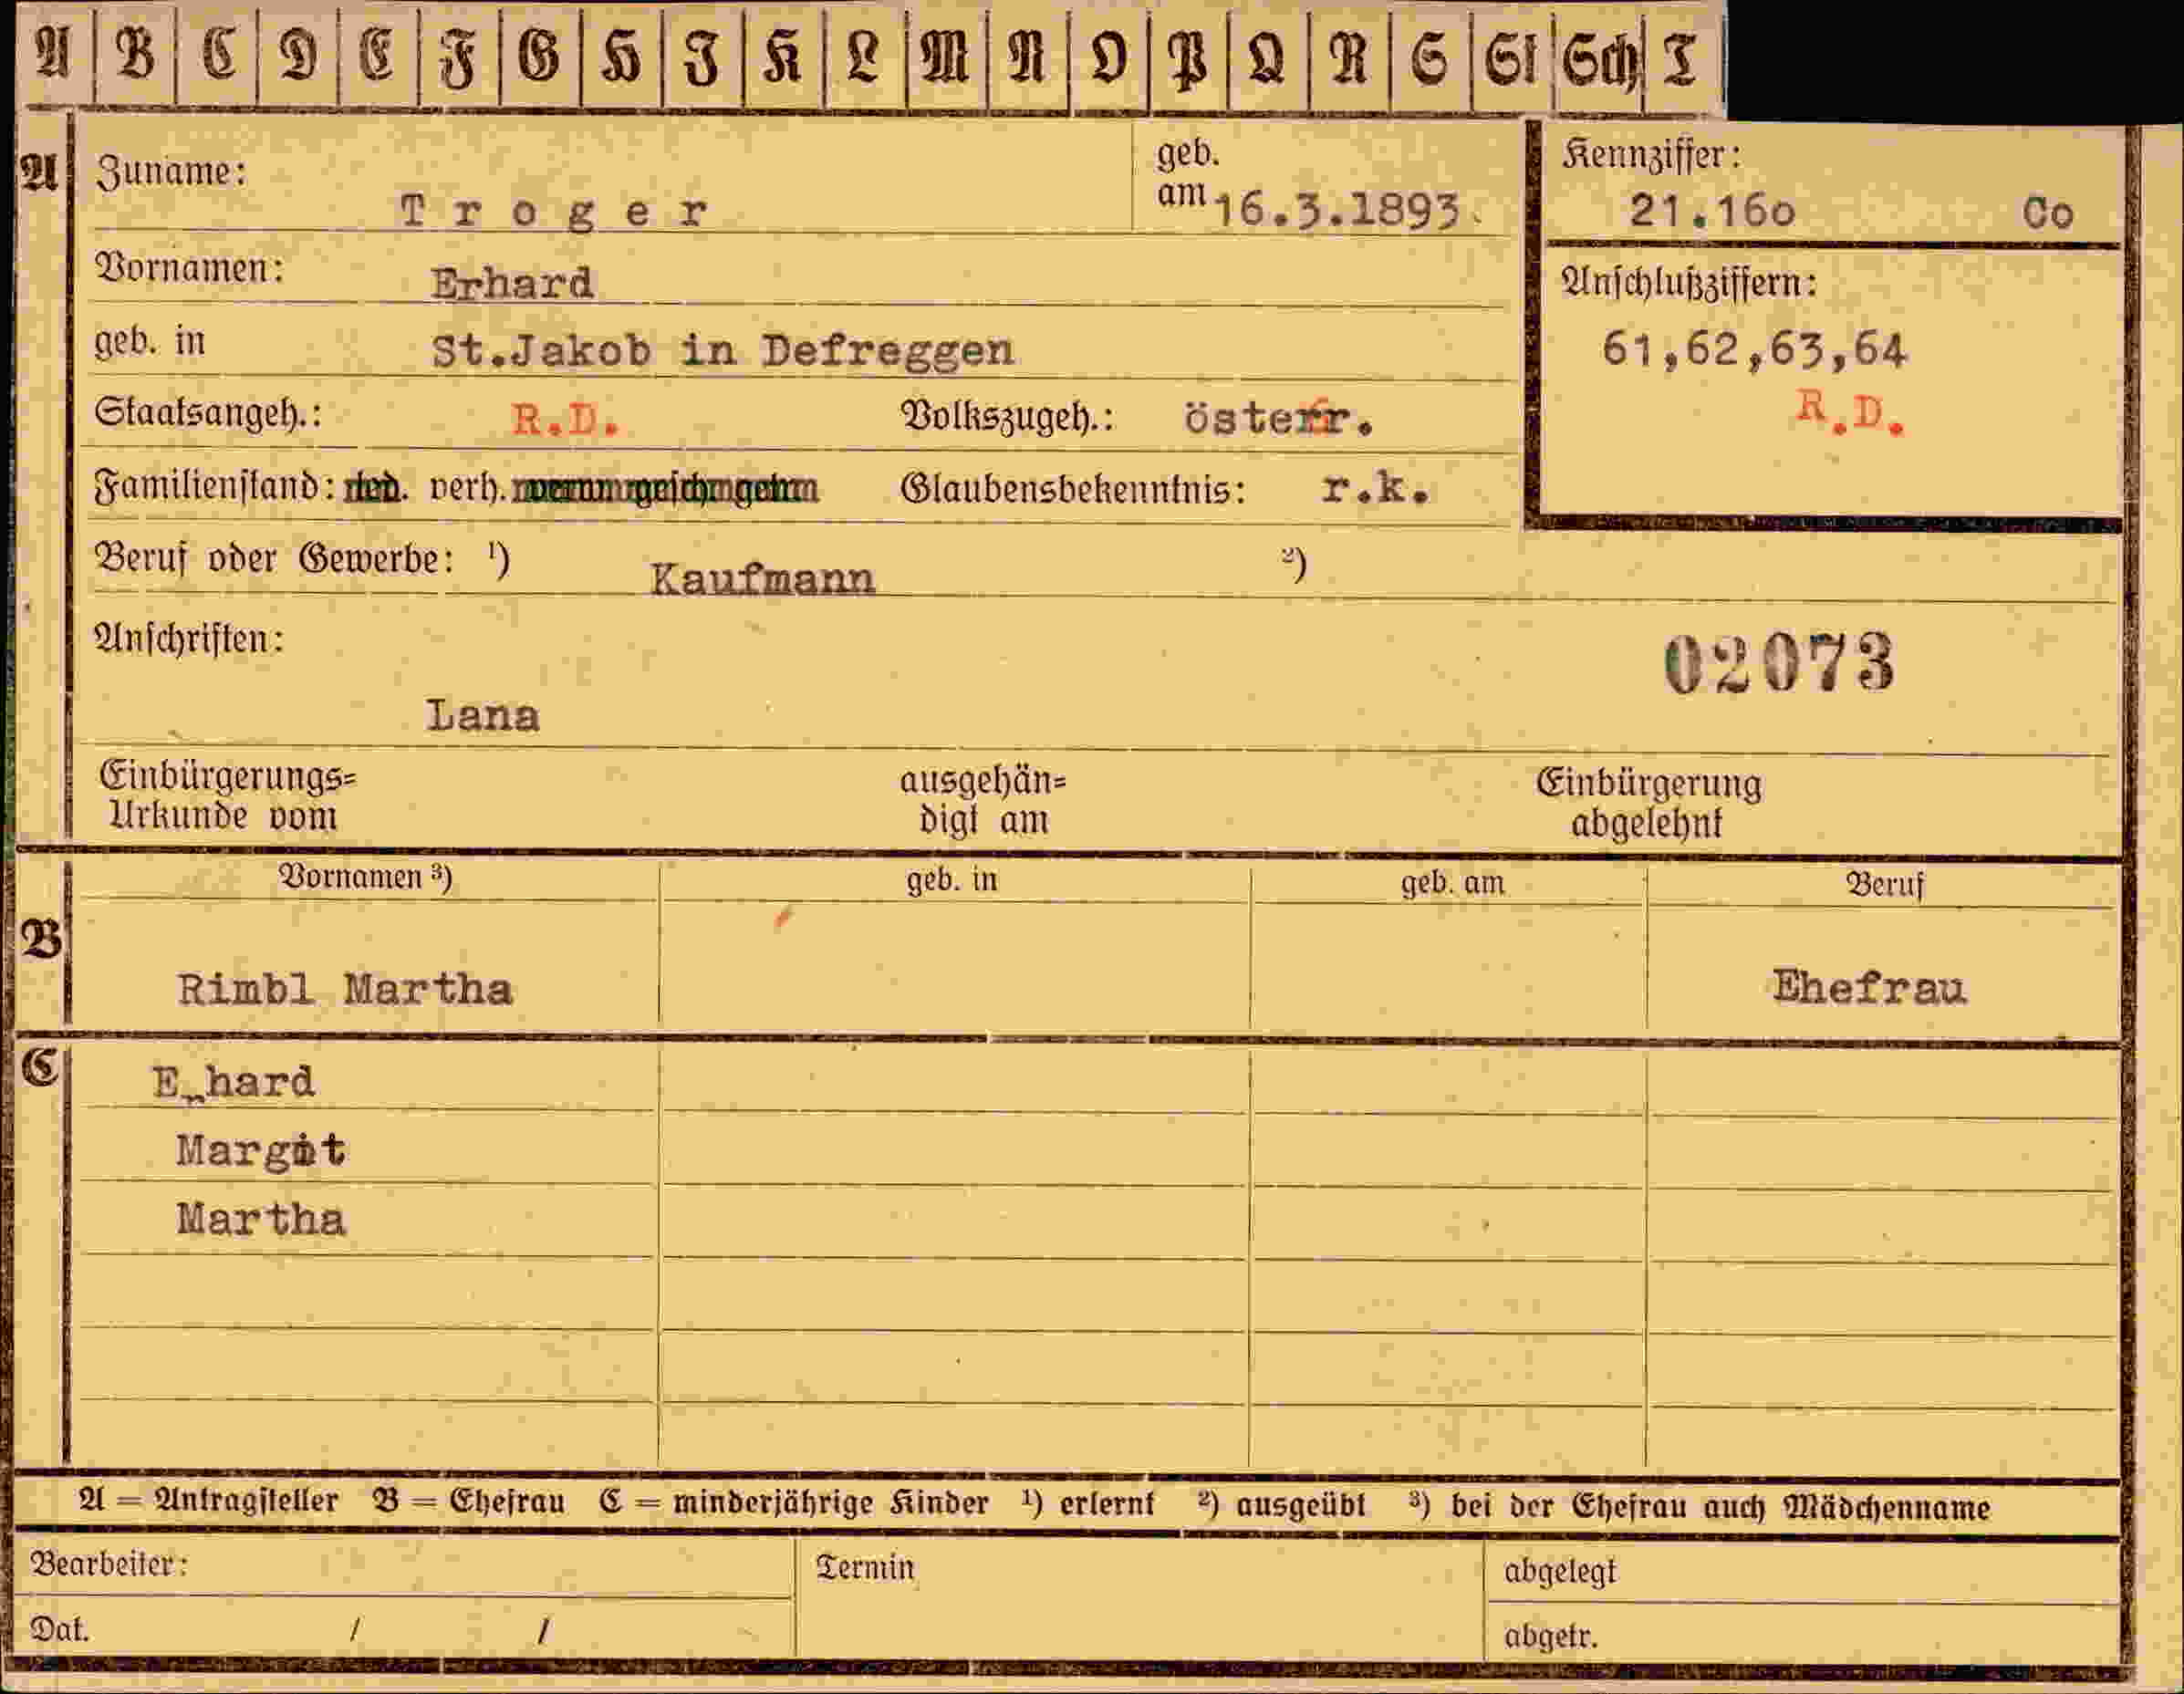 A B C D E F G H J K L M N O P Q R S St Sch T
A
Zuname: T r o g e r
geb. am 16.3.1893.
Kennziffer:
21.16o Co
Vornamen: Erhard
Anschlußziffern:
61,62,63,64
R.D.
geb. in St.Jakob in Defreggen
Staatsangeh.: R.D. Volkszugeh.: österr.
Familienstand: verh. Glaubensbekenntnis: r.k.
Beruf oder Gewerbe: ¹) Kaufmann ²)
Anschriften:
02073
Lana
Einbürgerungs=
Urkunde vom
ausgehän=
digt am
Einbürgerung
abgelehnt
Vornamen ³) geb. in geb. am Beruf
B
Rimbl Martha Ehefrau
C
E hard
Margot
Martha
A = Antragsteller B = Ehefrau C = minderjährige Kinder ¹) erlernt ²) ausgeübt ³) bei der Ehefrau auch Mädchenname
Bearbeiter: Termin abgelegt
Dat. / / abgetr.